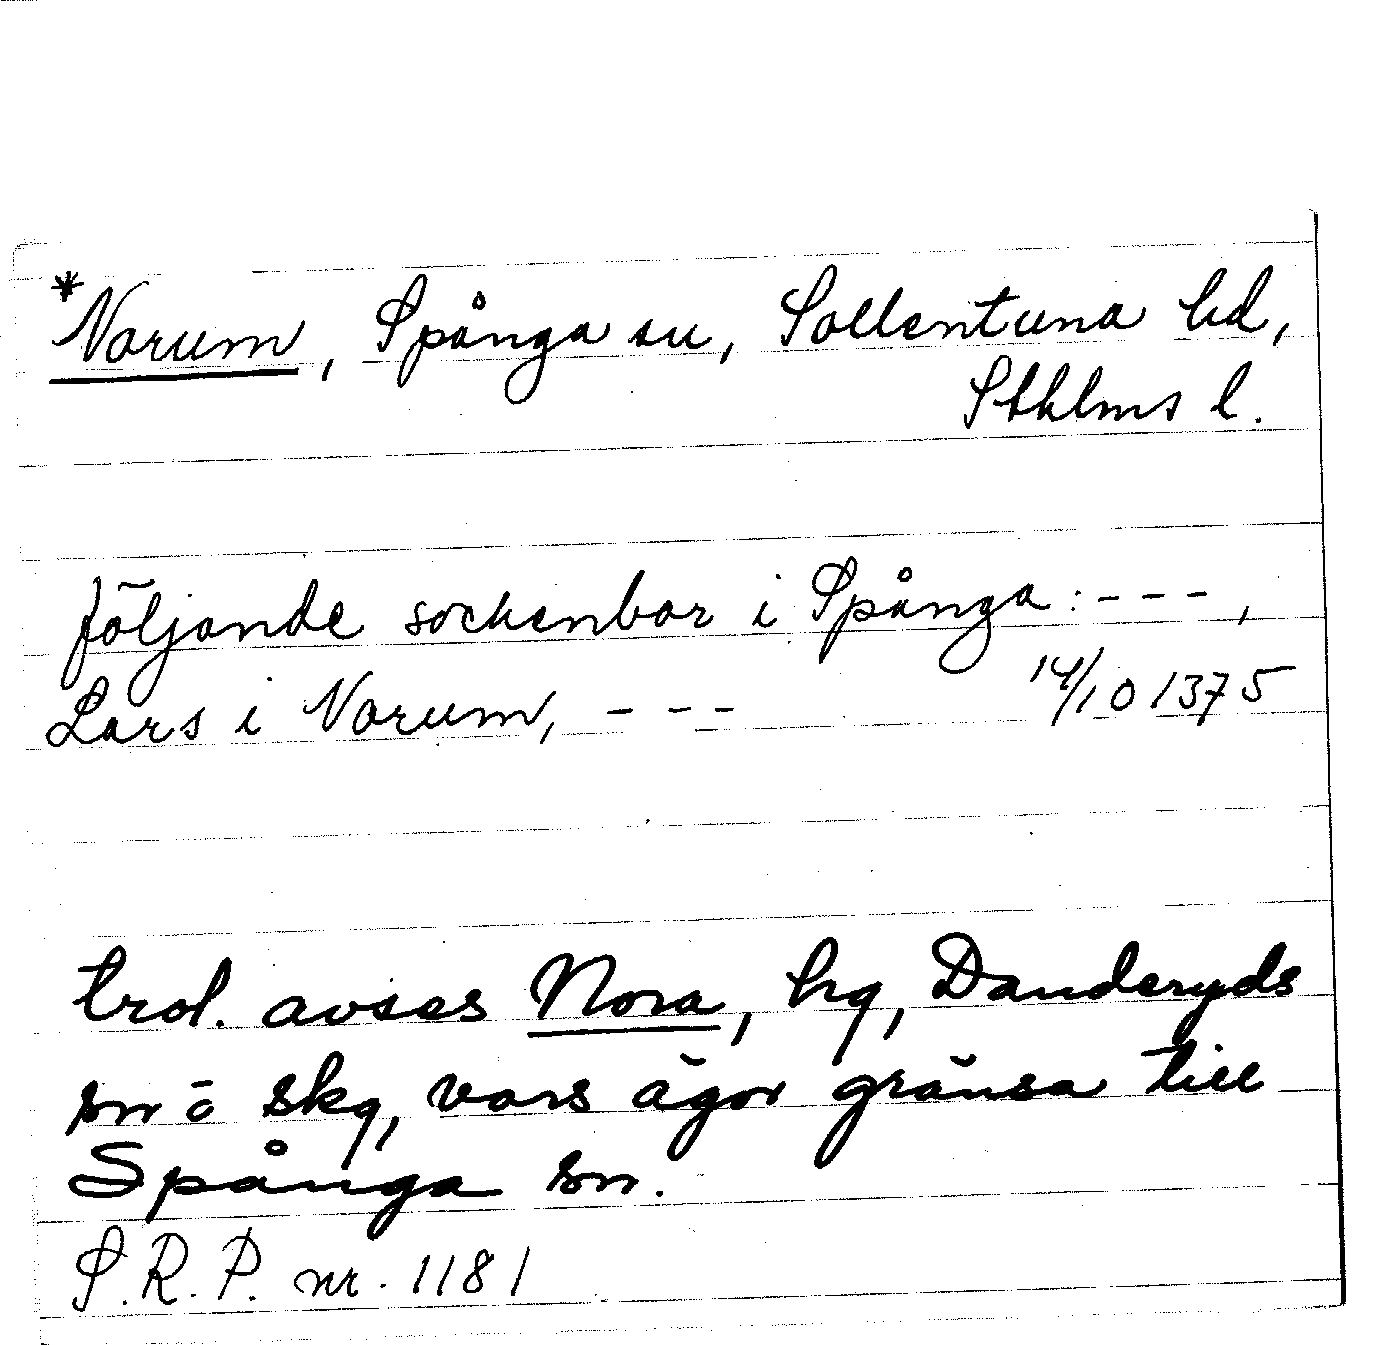 *Norum, Spånga sn, Sollentuna hd,
Sthlms l.
följande sockenbor i Spånga: - - - ,
Lars i Norum, - - - 14/10 1375
trol. avses Nora, hg, Danderyds
sn o skg, vars ägor gränsa till
Spånga sn.
S.R.P. nr. 1181